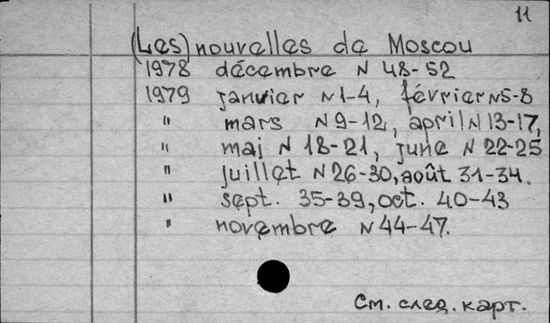 11
(Les) nouvelles de Moscou
1978 décembre N 48-52
1979 janvier N 1-4, février N 5-8
" mars N 9-12, april N 13-17,
" maj N 18-21, june N 22-25
" juillet N 26-30, août 31-34.
" sept. 35-39, oct. 40-43
" novembre N 44-47.
См. след. карт.